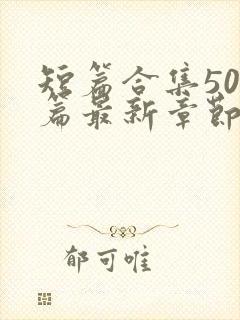 短篇合集50
篇最新章节
郁可唯